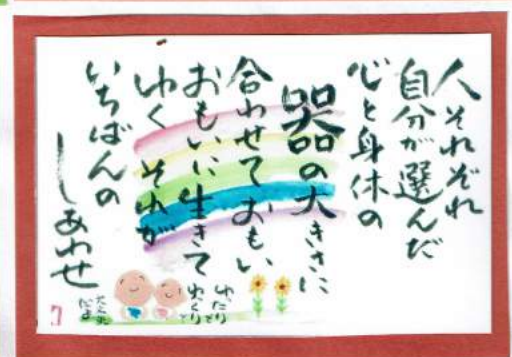 人それぞれ
自分が選んだ
心と身体の
器の大きさに
合わせておもい
おもいに生きて
ゆく それが
いちばんの
しあわせ
ゆったりで
ゆっくりで
大丈夫
だよ